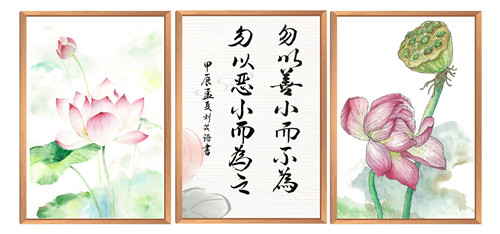 勿以善小而不為
勿以恶小而為之
甲辰孟夏刘書